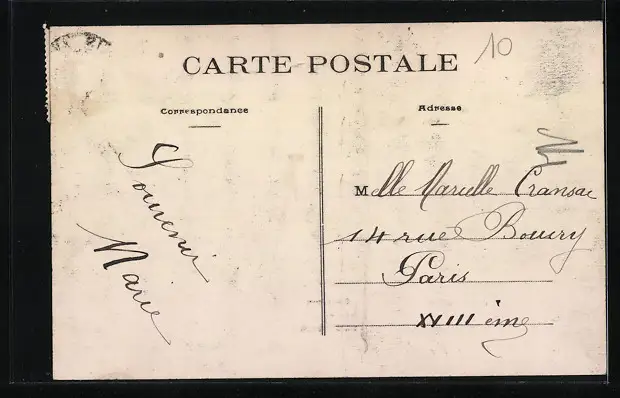 10
CARTE POSTALE
Correspondance
Adresse
Souvenir
Marie
Melle Marcelle Cransac
14 rue Boucry
Paris
XVIII ème